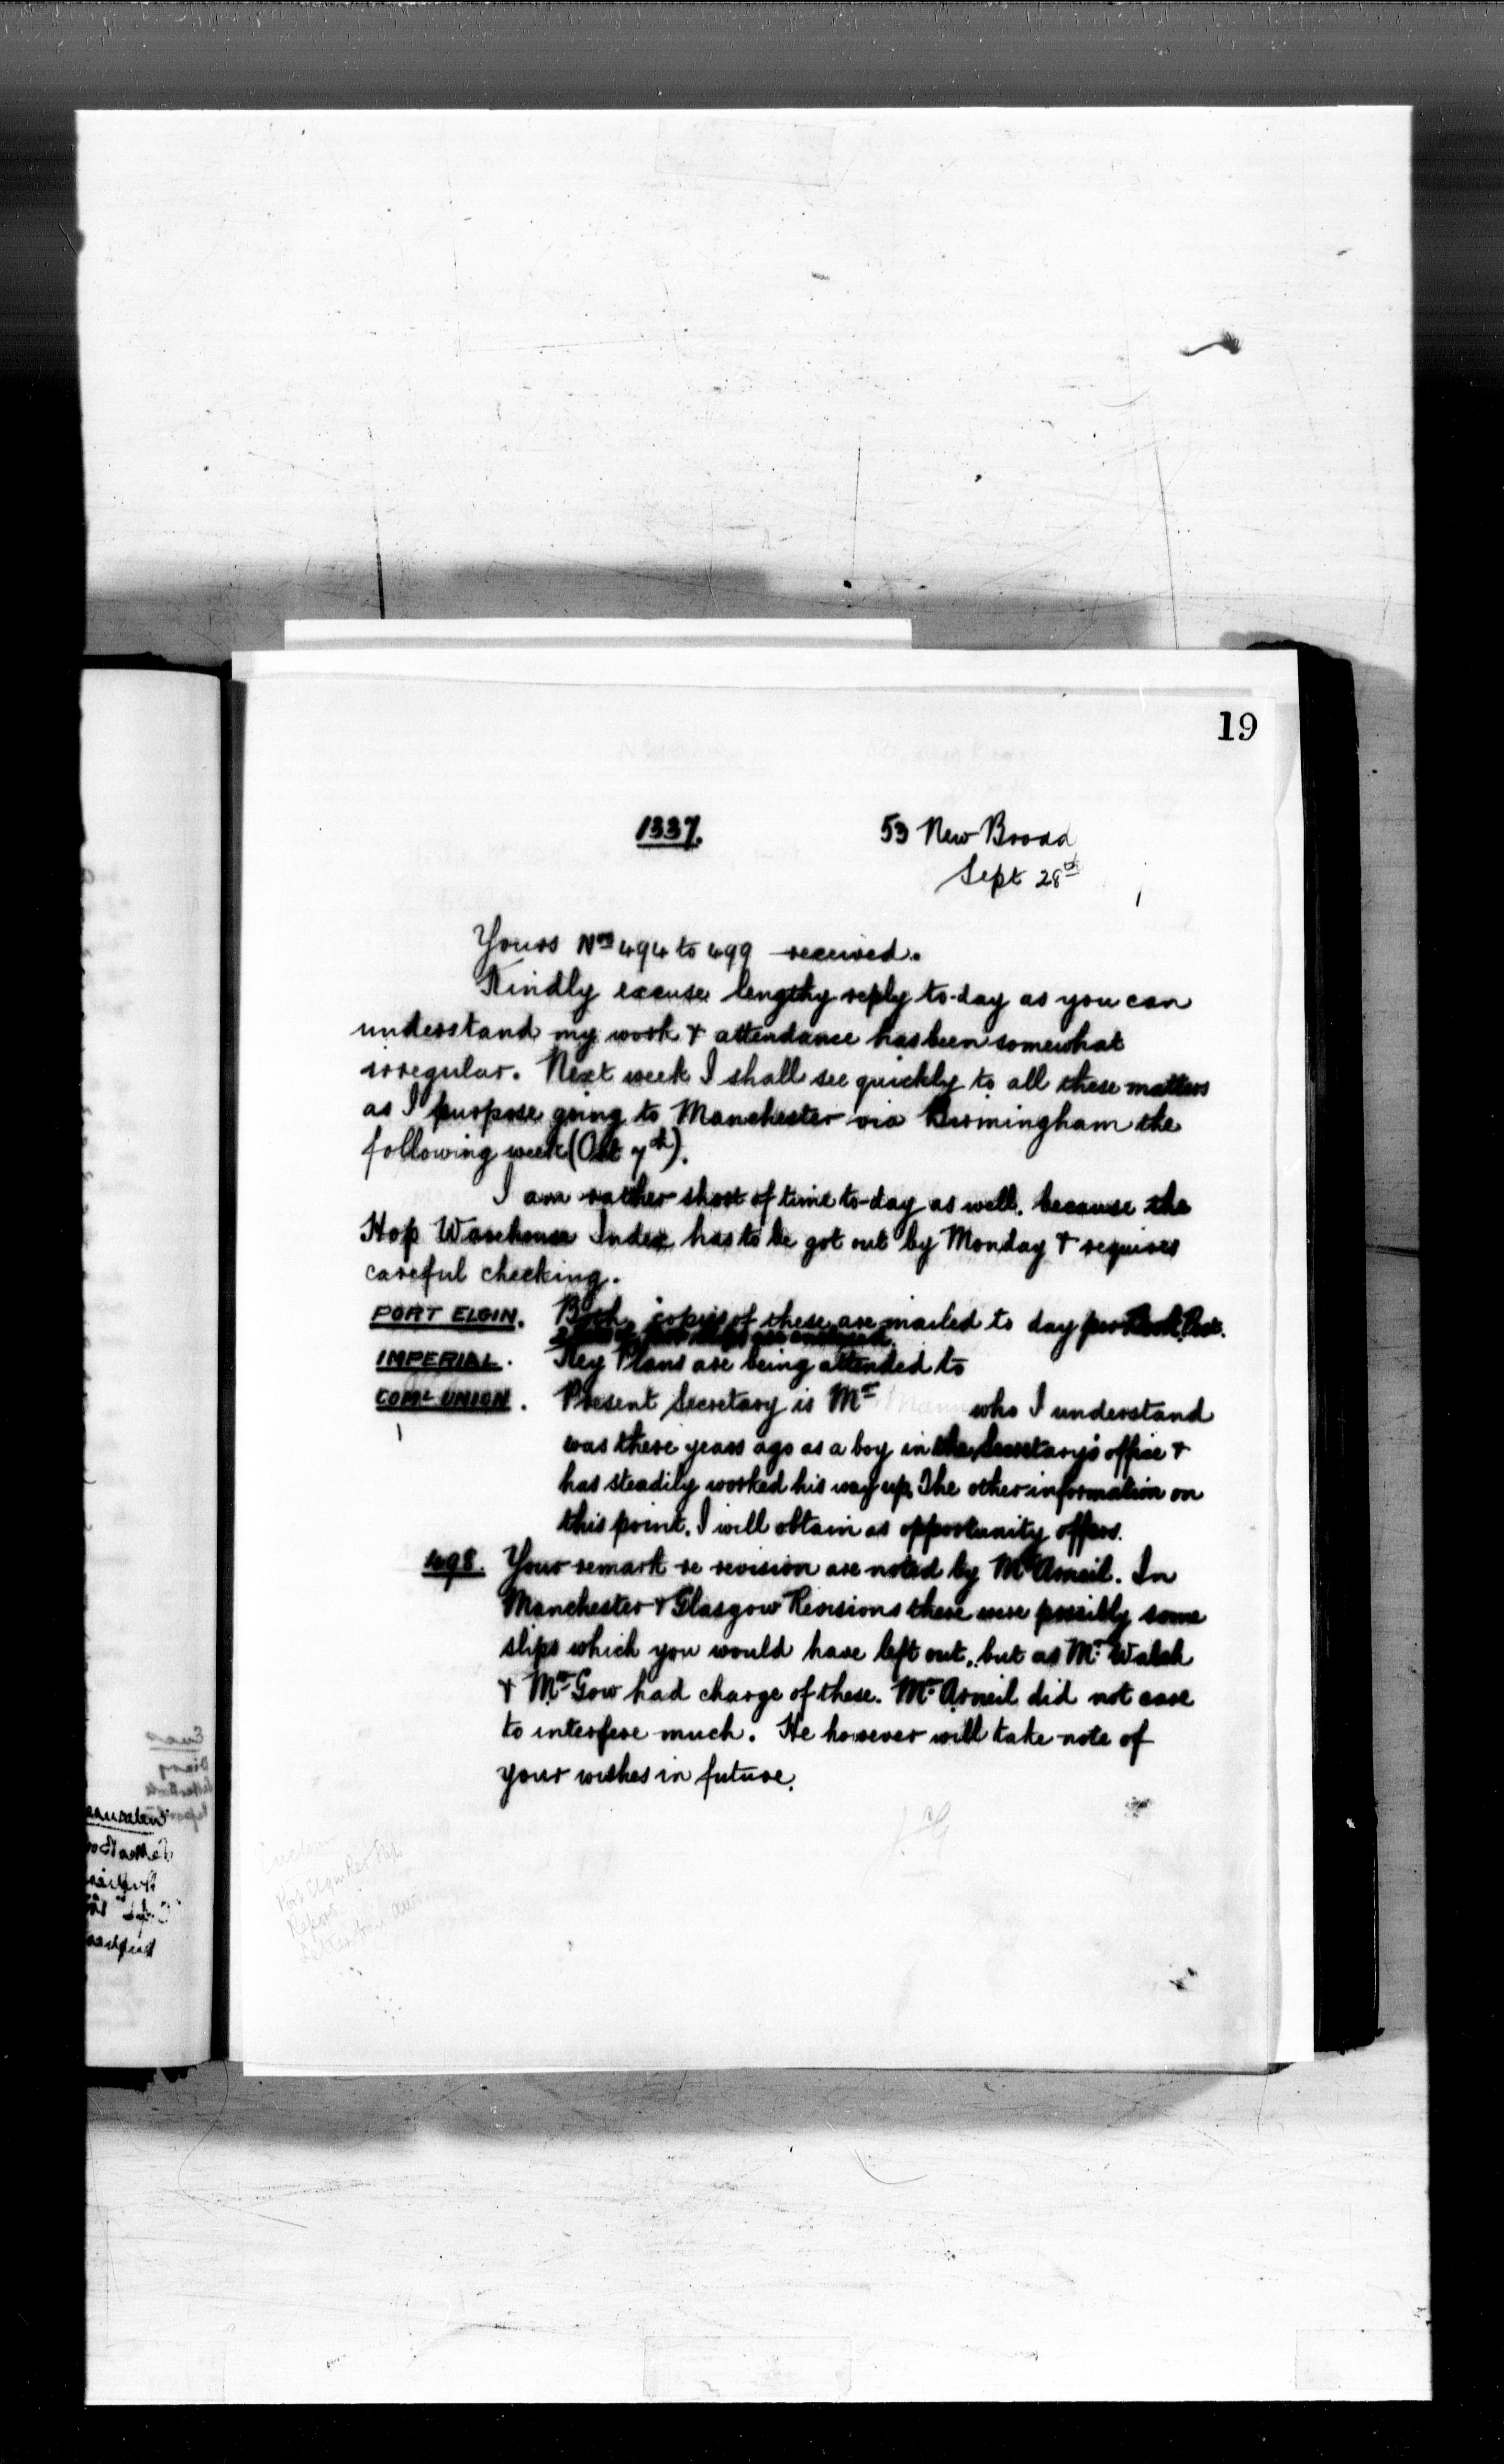 19
1337.
53 New Broad
Sept 28th
Yours Nos 494 to 499 received.
Kindly excuse lengthy reply to-day as you can
understand my work & attendance has been somewhat
irregular. Next week I shall see quickly to all these matters
as I purpose going to Manchester via Birmingham the
following week (Oct 7th).
I am rather short of time to-day as well, because the
Hop Warehouse Index has to be got out by Monday & requires
careful checking.
PORT ELGIN. Both copies of these are mailed to day per Book Post.
are enclosed
IMPERIAL. Key Plans are being attended to
COML UNION. Present Secretary is Mr Mann who I understand
was there years ago as a boy in the Secretary's office &
has steadily worked his way up. The other information on
this point, I will obtain as opportunity offers.
498. Your remark re revision are noted by Mr Arneil. In
Manchester & Glasgow Revisions there were possibly some
slips which you would have left out, but as Mr Walsh
& Mr Gow had charge of these. Mr Arneil did not care
to interfere much. He however will take note of
your wishes in future.
Port Elgin Rev Slips
Report
Letter from